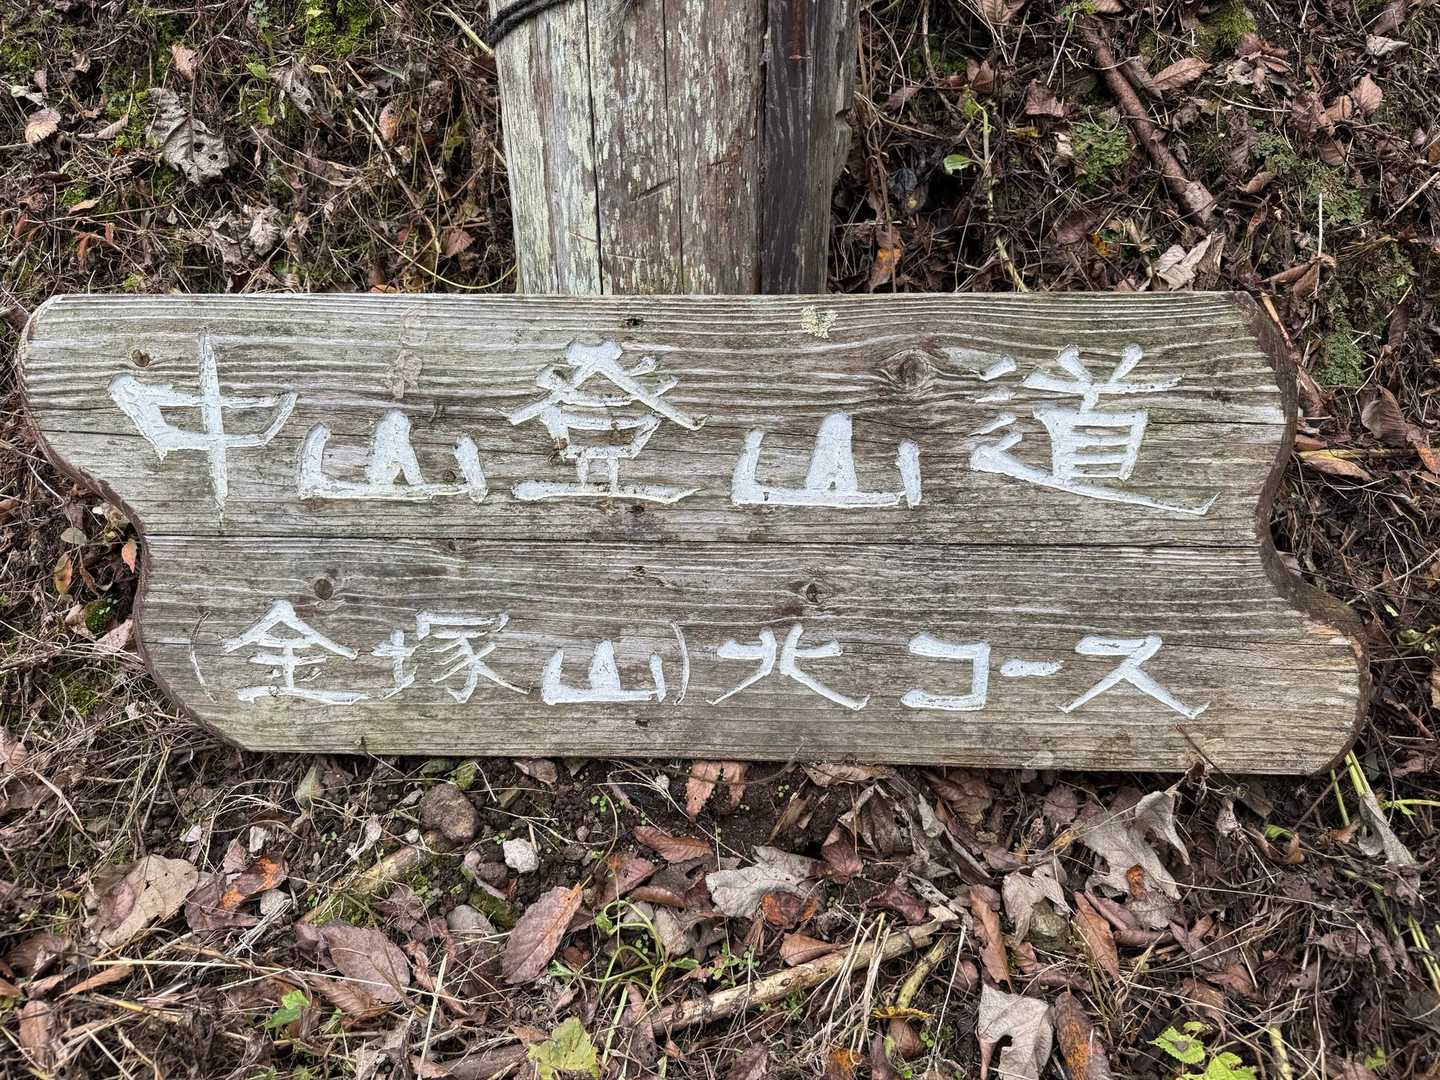 中山登山道
(金塚山)北コース